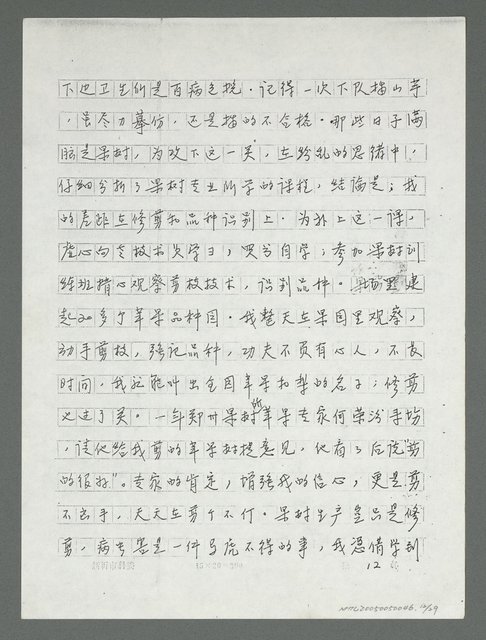 下边卫生所是百病包揽。记得一次下队指山芋
，虽尽力摹仿，还是指的不合格。那些日子满
脑是果树，为攻下这一关，在纷乱的思绪中，
仔细分析了果树专业所学的课程，结论是：我
的差距在修剪和品种识别上。为补上这一课，
虚心向老技术员学习，买书自学；参加果树训
练班精心观察剪枝技术，识别品种。果园里建
起20多个苹果品种园。我整天在果园里观察，
动手剪枝，强记品种，功夫不负有心人，不长
时间，我就能叫出全园苹果和梨的名子；修剪
也过了关。一年郑州果树所苹果专家何荣汾手场
，请他给我剪的苹果树提意见，他看了后说"剪
的很好"。专家的肯定，增强我的信心，更是剪
不离手，天天在剪个不停。果树生产重点是修
剪，病虫害是一件马虎不得的事，我凭借学到
15×20=300
12
NMTL20050050046 12/29